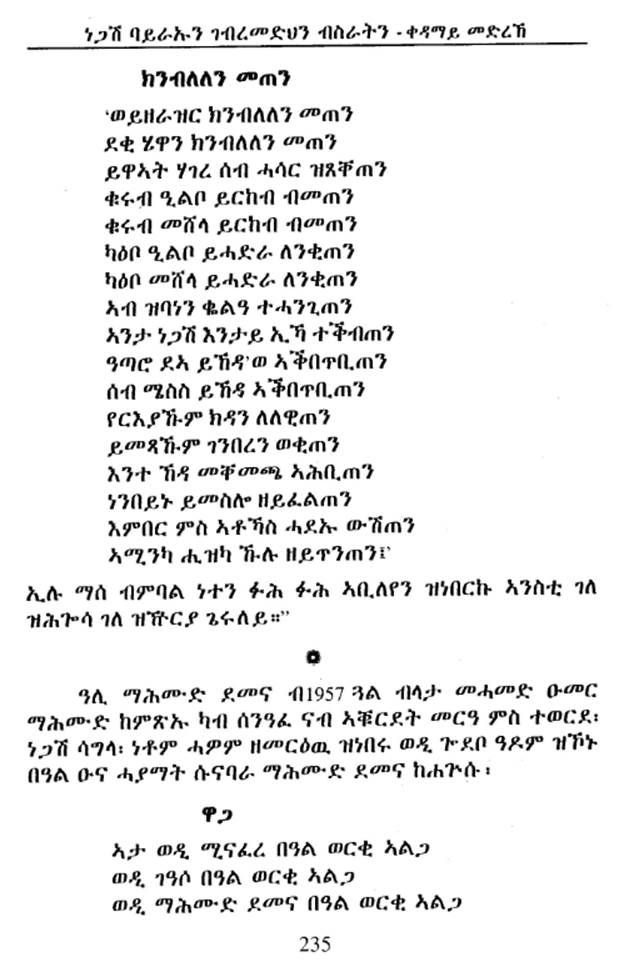 ነጋሽ ባይራኡን ገብረመድህን ብስራትን - ቀዳማይ መድረኽ
ክንብለለን መጠን
‘ወይዘራዝር ክንብለለን መጠን
ደቂ ሄዋን ክንብለለን መጠን
ይዋኣት ሃገረ ሰብ ሓሳር ዝጸቐጠን
ቁሩብ ዒልቦ ይርከብ ብመጠን
ቁሩብ መሸላ ይርከብ ብመጠን
ካዕቦ ዒልቦ ይሓድራ ለንቂጠን
ካዕቦ መሸላ ይሓድራ ለንቂጠን
ኣብ ዝባነን ቈልዓ ተሓንጊጠን
ኣንታ ነጋሽ እንታይ ኢኻ ተቐብጠን
ዓጣሮ ደኣ ይኸዳ’ወ ኣቐበጥቢጠን
ሰብ ሜስስ ይኸዳ ኣቐበጥቢጠን
የርእያኹም ክዳን ለለዊጠን
ይመጻኹም ገንበረን ወቂጠን
እንተ ኸዳ መቐመጫ ኣሕቢጠን
ነንበይኑ ይመስሎ ዘይፈልጠን
እምበር ምስ ኣቶኻስ ሓደኡ ውሽጠን
ኣሚንካ ሒዝካ ኹሉ ዘይጥንጠን፤’
ኢሉ ማሰ ብምባል ነተን ፉሕ ፉሕ ኣቢለየን ዝነበርኩ ኣንስቲ ገለ
ዝሕጐሳ ገለ ዝዀርያ ጌሩለይ።”
ዓሊ ማሕሙድ ደመና ብ1957 ጓል ብላታ መሓመድ ዑመር
ማሕሙድ ከምጽኡ ካብ ሰንዓፈ ናብ ኣቑርደት መርዓ ምስ ተወርደ፡
ነጋሽ ሳግላ፡ ነቶም ሓዎም ዘመርዕዉ ዝነበሩ ወዲ ጕደቦ ዓዶም ዝኾኑ
በዓል ዑና ሓያማት ሱናባራ ማሕሙድ ደመና ከሐጕሱ፡
ዋጋ
ኣታ ወዲ ሚናፈረ በዓል ወርቂ ኣልጋ
ወዲ ገዓሶ በዓል ወርቂ ኣልጋ
ወዲ ማሕሙድ ደመና በዓል ወርቂ ኣልጋ
235